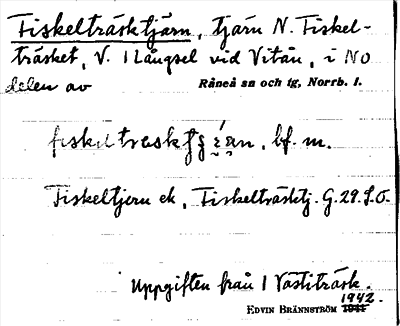 Fiskelträsktjärn, tjärn N. Fiskel-
träsket, V. 1 Långsel vid Vitån, i No
delen av Råneå sn och tg, Norrb. l.
bf. m.
Fiskeltjern ek, Fiskelträsktj. G. 29. S.O.
Uppgiften från 1 Västiträsk.
1942.
EDVIN BRÄNNSTRÖM 1941